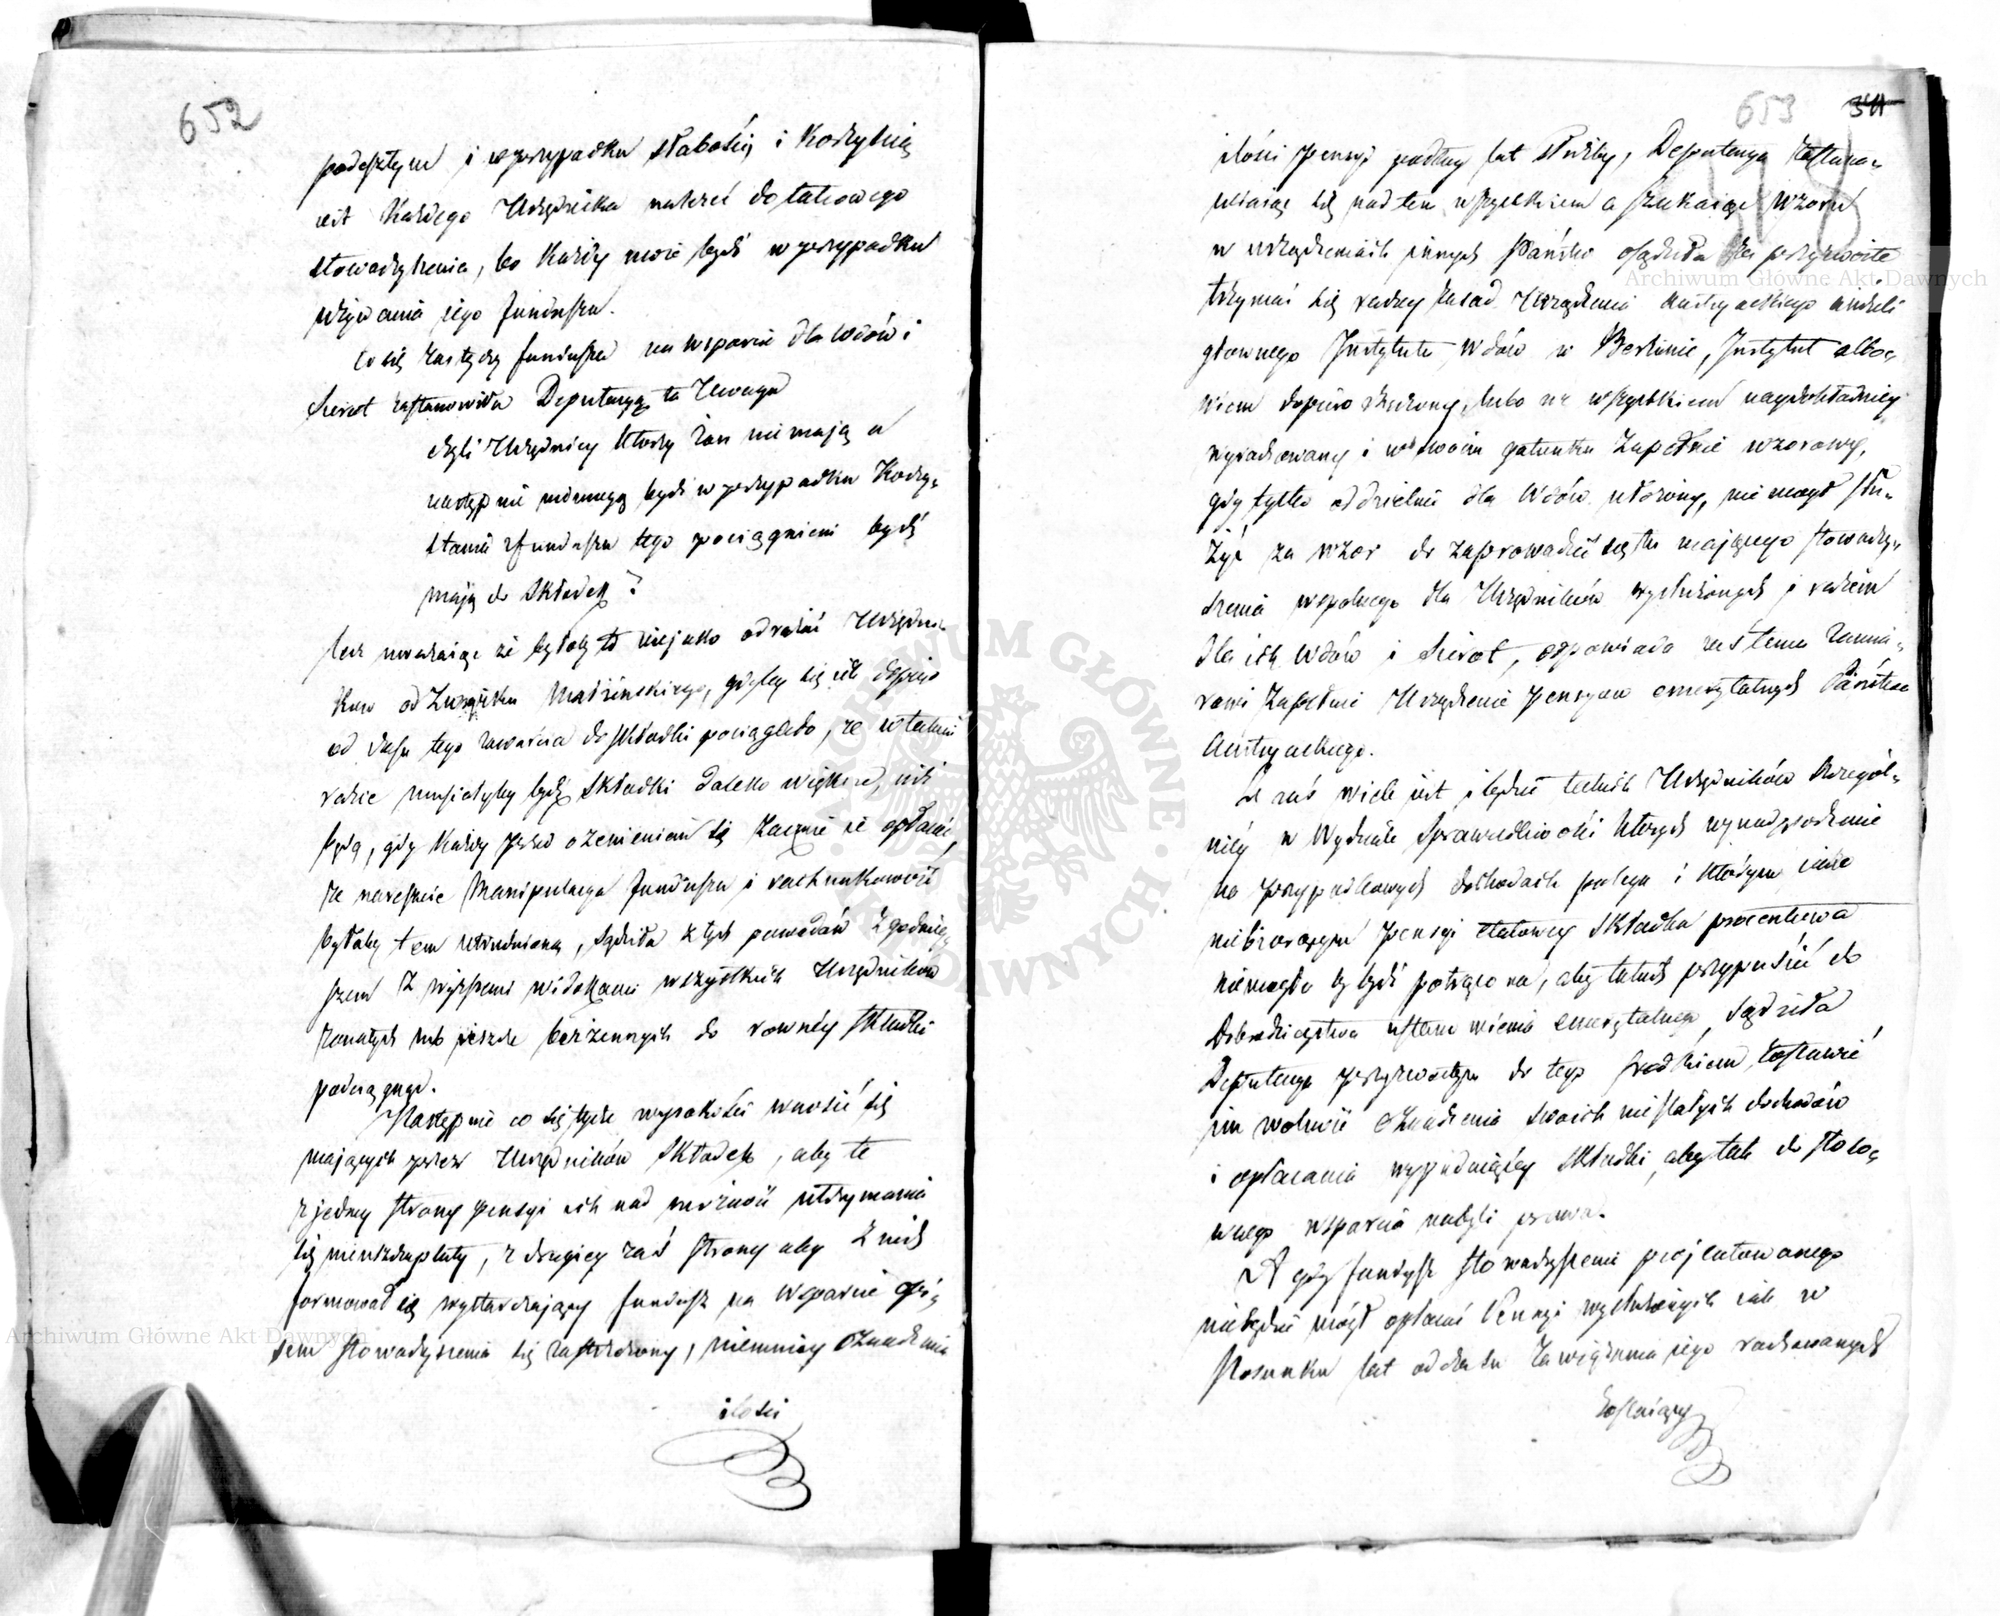 652
podeszłym i w przypadku słabości, i Korzyścią
iest każdego Urzędnika należeć do takowego
stowarzyszenia, bo każdy może bydź w przypadku
używania iego funduszu.
Co się tyczy funduszu na wsparcie dla Wdów i
Sierot zastanowiła Deputacyą ta Uwaga
czyli Urzędnicy którzy żon nie maią a
następnie niemogą bydź w przypadku Korzy-
stania z funduszu tego pociągnieni bydź
maią do Składek?
lecz uważaiąc że byłoby to niejako odrażać Urzędni-
ków od Związku Małżeńskiego, gdyby się ich dopiero
od czasu tego zawarcia do składki pociągało, że w takim
razie musiałyby bydź składki daleko większe, niż
będą, gdy każdy przed ożenieniem się zacznie ie opłacać,
że nareszcie Manipulacya funduszu i rachunkowość
byłaby tem utrudniona, sądziła z tych powodów zgodniey
szem z wyższemi widokami wszystkich Urzędników
żonatych lub jeszcze bezżennych do równéy składki
pociągnąć.
Następnie co się tycze wysokości wnosić się
maiących przez Urzędników Składek, aby te
z jedney strony pensyi ich nad możność utrzymania
się nieuszczuplały, z drugiey zaś strony aby z nich
formował się wystarczaiący fundusz na wsparcie
tem stowarzyszenia się zastrzeżony, niemniey oznaczenia
ilości
653 341
318
ilości pensyi podług lat służby, Deputacya zastana-
wiaiąc się nad tem wszystkiem a szukaiąc wzoru
w urządzeniach innych Państw osądziła za przyzwoite
trzymać się raczey zasad Urządzenia Austryackiego aniżeli
głownego Instytutu Wdów w Berlinie, Instytut albo-
wiem dopiero rzeczony, lubo we wszystkiem naydokładniey
wyrachowany i w swoim gatunku zupełnie wzorowy,
gdy tylko oddzielnie dla Wdów utworzony, nie mógł słu-
żyć za wzor do zaprowadzić się tu maiącego stowarzy-
szenia wspolnego dla Urzędników wysłużonych i razem
dla ich Wdów i Sierot, odpowiada zaś temu zamia-
rowi zupełnie Urządzenie pensyow emerytalnych Państwa
Austryackiego.
Że zaś wiele iest i będzie takich Urzędników szczegól-
niéy w Wydziale Sprawiedliwości których wynadgrodzenie
na przypadkowych dochodach polega i którym iako
niebiorącym pensyi etatowey składka procentowa
niemogła by bydź potrącona, aby takich przypuścić do
Dobrodzieystwa ustanowienia emerytalnego, sądziła
Deputacya przyzwoitym do tego środkiem, zostawić
im wolność oznaczenia swoich niestałych dochodów
i opłacania wypadaiącéy składki, aby tak do stoso-
wnego wsparcia nabyli prawa.
A gdy fundusz stowarzyszenia projektowanego
niebędzie mógł opłacać Pensyi wysłużonych iak w
stosunku lat od czasu zawiązania iego rachowanych